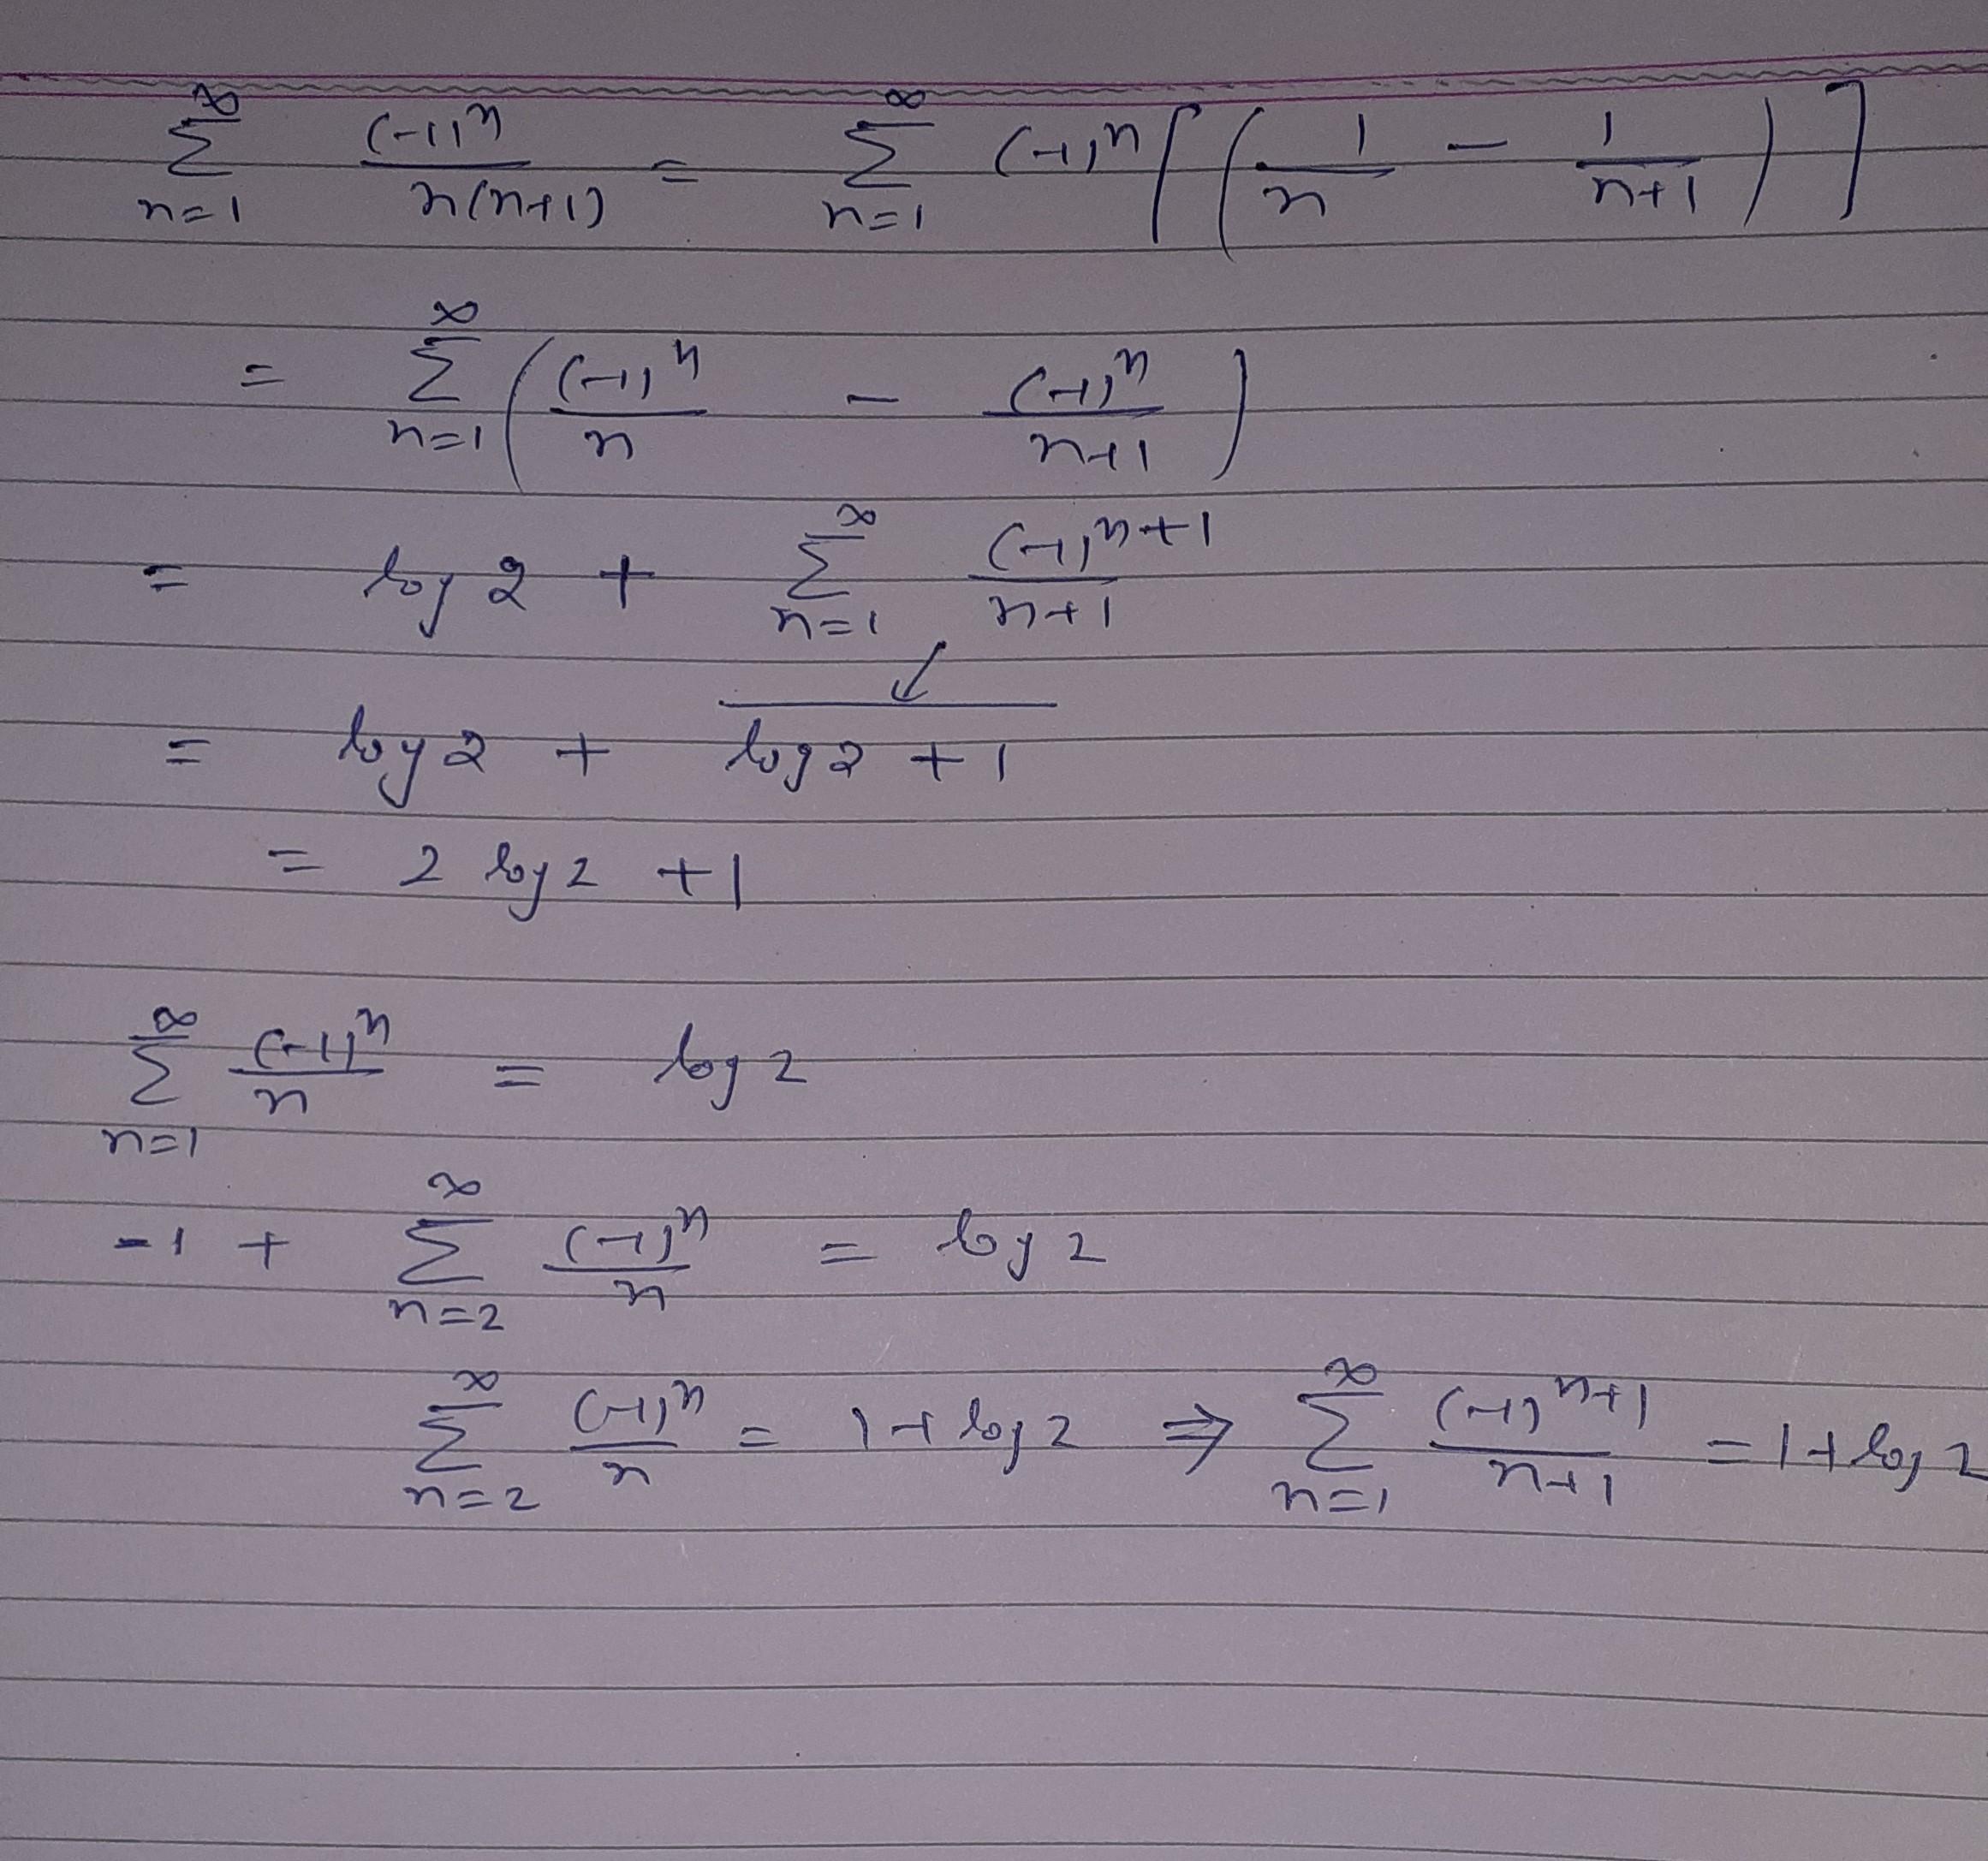 ∞∑n=1 (-1)^n / n(n+1) = ∞∑n=1 (-1)^n [ ( 1/n - 1/n+1 ) ]
= ∞∑n=1 ( (-1)^n / n - (-1)^n / n+1 )
= log 2 + ∞∑n=1 (-1)^n+1 / n+1
↙
= log 2 + log 2 + 1
= 2 log 2 + 1
∞∑n=1 (-1)^n / n = log 2
-1 + ∞∑n=2 (-1)^n / n = log 2
∞∑n=2 (-1)^n / n = 1 + log 2 ⇒ ∞∑n=1 (-1)^n+1 / n+1 = 1 + log 2